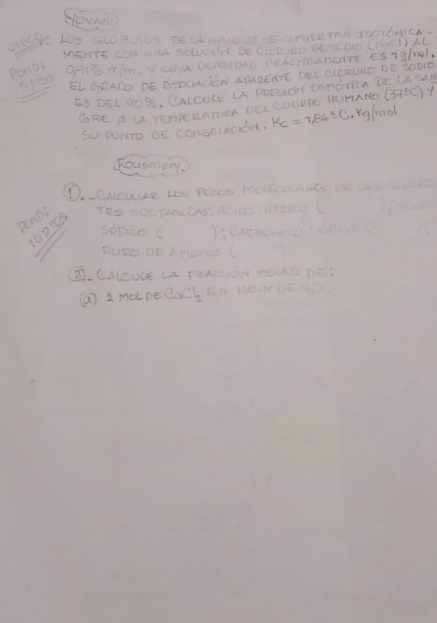 UNICO:
POND:
5 PTOS
LOS GLOBULOS DE LA SANGRE SE COMPORTAN ISOTÓNICA-
MENTE CON UNA SOLUCIÓN DE CLORURO DE SODIO (NaCl) AL
m/m. Y CUYA DENSIDAD PRÁCTICAMENTE ES 1g/ml.
EL GRADO DE DISOCIACIÓN APARENTE DEL CLORURO DE SODIO
ES DEL 90%. CALCULE LA PRESIÓN OSMÓTICA DE LA SAN
GRE A LA TEMPERATURA DEL CUERPO HUMANO (37°C) Y
SU PUNTO DE CONGELACIÓN. Kc = 1,86°C.Kg/mol
Rousmery
POND:
10 PTOS
①.- CALCULAR LOS PESOS MOLECULARES DE LAS
TES SUSTANCIAS: ACIDO NÍTRICO ( );
SÓDICO ( ); CARBONATO SÓDICO ( );
RURO DE AMONIO ( )
②.- CALCULE LA FRACCIÓN MOLAR DE:
(a) 1 MOL DE CaCl2 EN 100gr DE